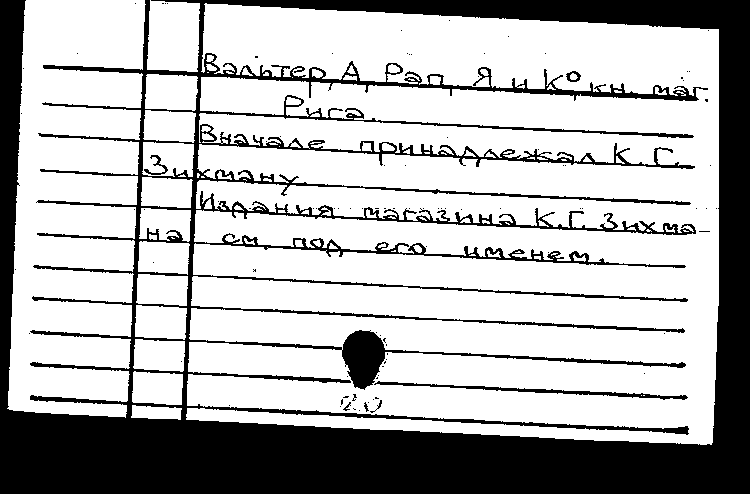 Вальтер, А, Рап, Я. и К⁰, кн. маг.
Рига.
Вначале принадлежал К. Г.
Зихману.
Издания магазина К.Г. Зихма-
на см. под его именем.
20